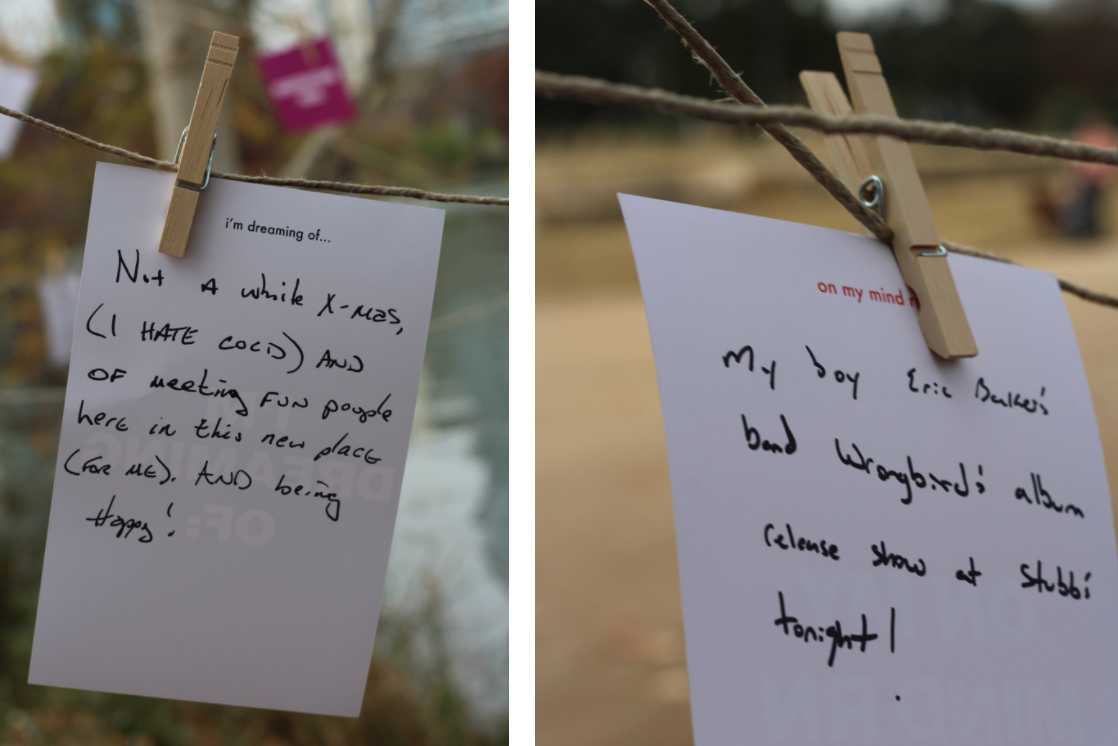 i'm dreaming of...
Not A white X-MAS,
(I HATE COLD) AND
OF meeting FUN people
here in this new place
(FOR ME). AND being
Happy!
DREAMING
OF:
on my mind
My boy Eric Baker's
band Wrongbird's album
release show at Stubb's
tonight!
ON MY
MIND RN